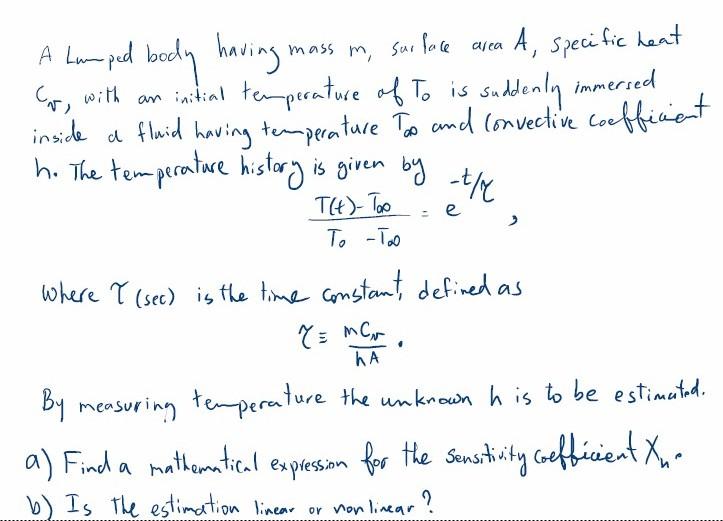 A Lumped body having mass m, surface area A, specific heat
Cv, with an initial temperature of To is suddenly immersed
inside a fluid having temperature T∞ and Convective coefficient
h. The temperature history is given by
T(t)-T∞ / To -T∞ = e^-t/τ ,
where τ (sec) is the time constant, defined as
τ ≡ mCv / hA .
By measuring temperature the unknown h is to be estimated.
a) Find a mathematical expression for the sensitivity coefficient Xh.
b) Is the estimation linear or nonlinear?